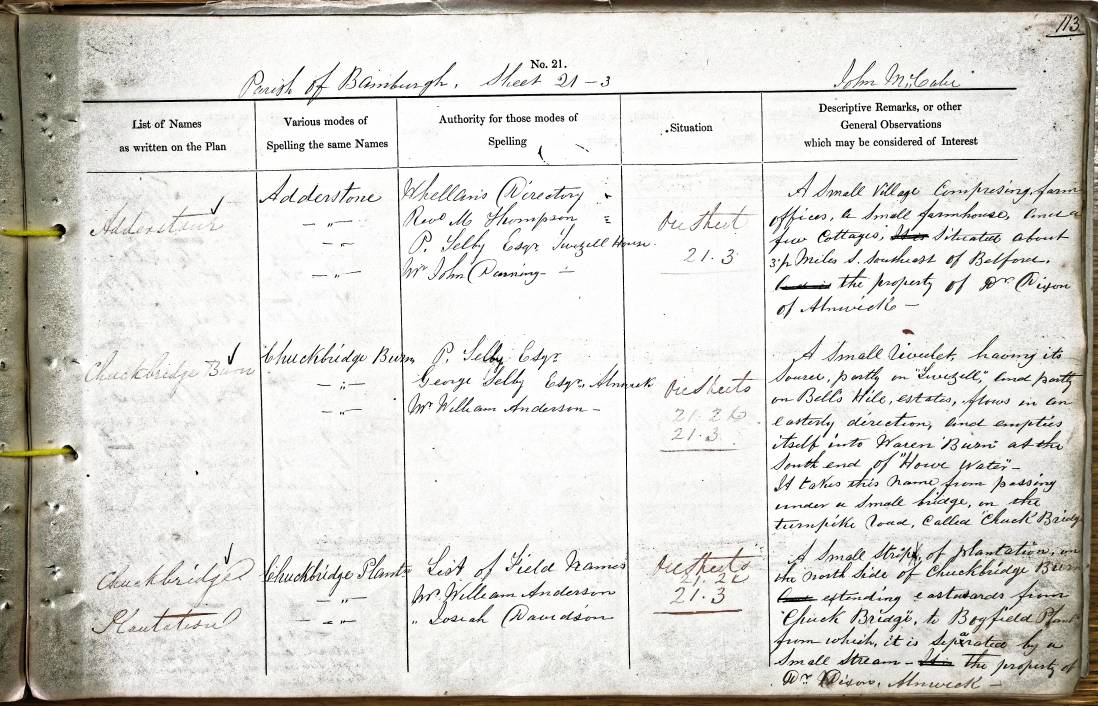 113
No. 21.
Parish of Bamburgh. Sheet 21-3
John McCabe
List of Names
as written on the Plan
Various modes of
Spelling the same Names
Authority for those modes of
Spelling
Situation
Descriptive Remarks, or other
General Observations
which may be considered of Interest
Adderstone
Adderstone
Whellan's Directory
Revd M. Thompson
P. Selby Esqr. Twizell House.
Mr John Dunning
On Sheet
21.3
A Small Village Comprising, farm
offices, a small farmhouse, and a
few Cottages, It is Situated about
3½ Miles S. Southeast of Belford.
And is the property of Dr. Dixon
of Alnwick -
Chuckbridge Burn
Chuckbridge Burn
P. Selby Esqr
George Selby Esqr, Alnwick
Mr William Anderson -
On Sheets
21.3
A Small rivulet, having its
source, partly on "Twizell", and partly
on Bell's Hill, estates, flows in an
easterly direction, and empties
itself into Waren Burn at the
South end of "Howe Water" -
It takes this name from passing
under a small bridge, on the
turnpike road, called Chuck Bridge
Chuckbridge
Plantation
Chuckbridge Plantn
List of Field Names
Mr William Anderson
" Josiah Davidson
On Sheets
21.3
A Small Strip, of plantation, on
the North side of Chuckbridge Burn
extending eastwards from
"Chuck Bridge", to Boyfield Plantn
from which, it is separated by a
Small stream - It is the property of
Dr. Dixon, Alnwick -